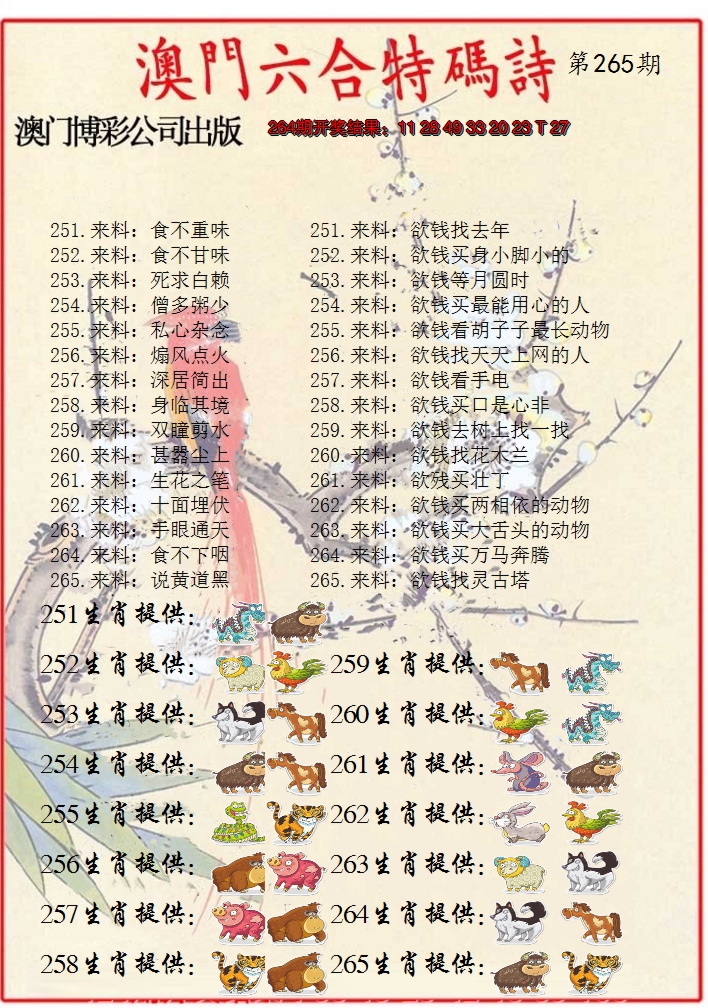 澳門六合特碼詩 第265期
澳门博彩公司出版 264期开奖结果：11 28 49 33 20 23 T 27
251.来料：食不重味 251.来料：欲钱找去年
252.来料：食不甘味 252.来料：欲钱买身小脚小的
253.来料：死求白赖 253.来料：欲钱等月圆时
254.来料：僧多粥少 254.来料：欲钱买最能用心的人
255.来料：私心杂念 255.来料：欲钱看胡子子最长动物
256.来料：煽风点火 256.来料：欲钱找天天上网的人
257.来料：深居简出 257.来料：欲钱看手电
258.来料：身临其境 258.来料：欲钱买口是心非
259.来料：双瞳剪水 259.来料：欲钱去树上找一找
260.来料：甚嚣尘上 260.来料：欲钱找花木兰
261.来料：生花之笔 261.来料：欲残买壮丁
262.来料：十面埋伏 262.来料：欲钱买两相依的动物
263.来料：手眼通天 263.来料：欲钱买大舌头的动物
264.来料：食不下咽 264.来料：欲钱买万马奔腾
265.来料：说黄道黑 265.来料：欲钱找灵古塔
251生肖提供：
252生肖提供： 259生肖提供：
253生肖提供： 260生肖提供：
254生肖提供： 261生肖提供：
255生肖提供： 262生肖提供：
256生肖提供： 263生肖提供：
257生肖提供： 264生肖提供：
258生肖提供： 265生肖提供：